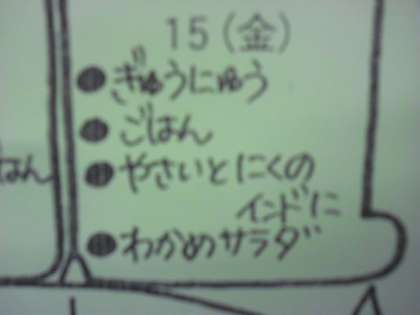 15(金)
●ぎゅうにゅう
●ごはん
●やさいとにくの
インドに
●わかめサラダ
ねん